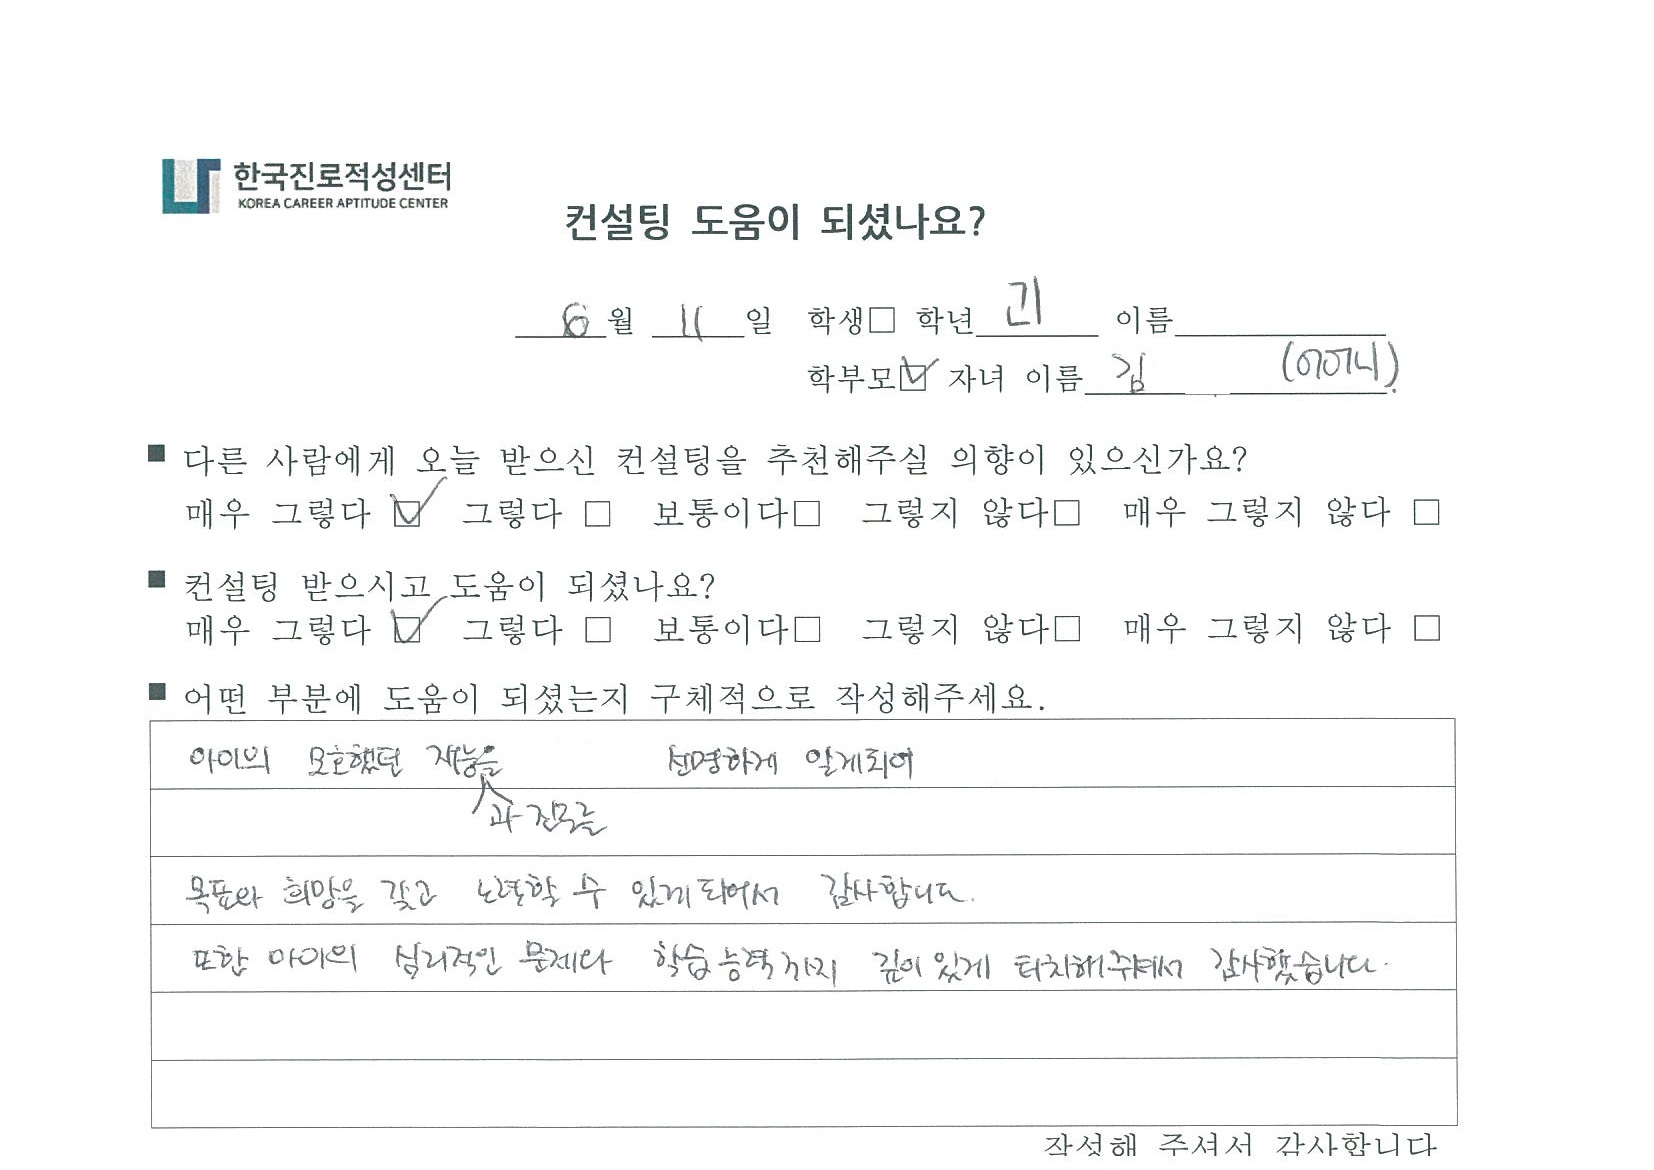 한국진로적성센터
KOREA CAREER APTITUDE CENTER
컨설팅 도움이 되셨나요?
6월 11일 학생□ 학년 고1 이름
학부모☑ 자녀 이름 김 (어머니)
■ 다른 사람에게 오늘 받으신 컨설팅을 추천해주실 의향이 있으신가요?
매우 그렇다 ☑ 그렇다 □ 보통이다□ 그렇지 않다□ 매우 그렇지 않다 □
■ 컨설팅 받으시고 도움이 되셨나요?
매우 그렇다 ☑ 그렇다 □ 보통이다□ 그렇지 않다□ 매우 그렇지 않다 □
■ 어떤 부분에 도움이 되셨는지 구체적으로 작성해주세요.
아이의 모호했던 재능을 선명하게 알게되어
과 진로를
목표와 희망을 갖고 노력할 수 있게 되어서 감사합니다.
또한 아이의 심리적인 문제와 학습능력까지 깊이있게 터치해주셔서 감사했습니다.
작성해 주셔서 감사합니다